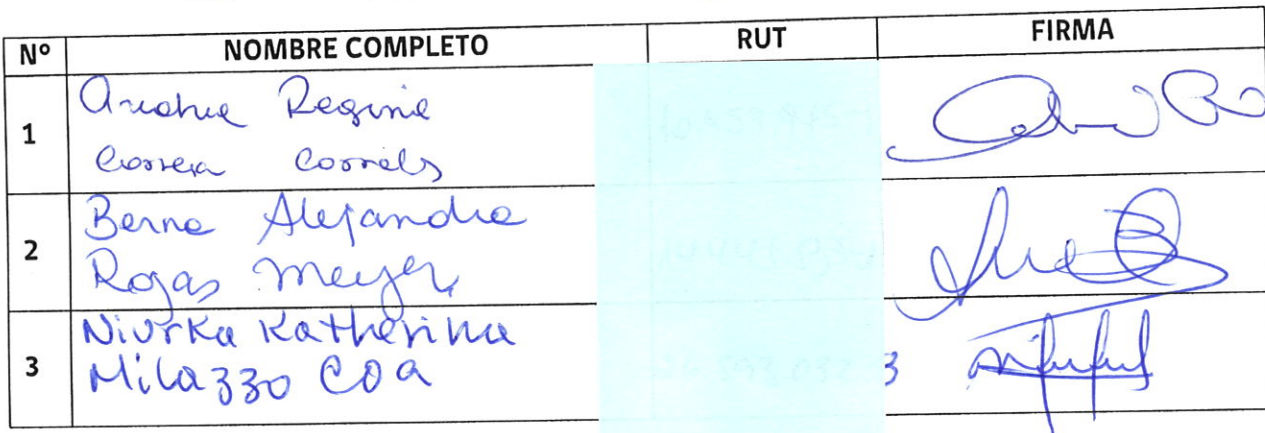 Nº NOMBRE COMPLETO RUT FIRMA
1 Regina
Correa
2 Berna Alejandra
Rojas Meyer
3 Nivrka Katherina
Milazzo COA 3